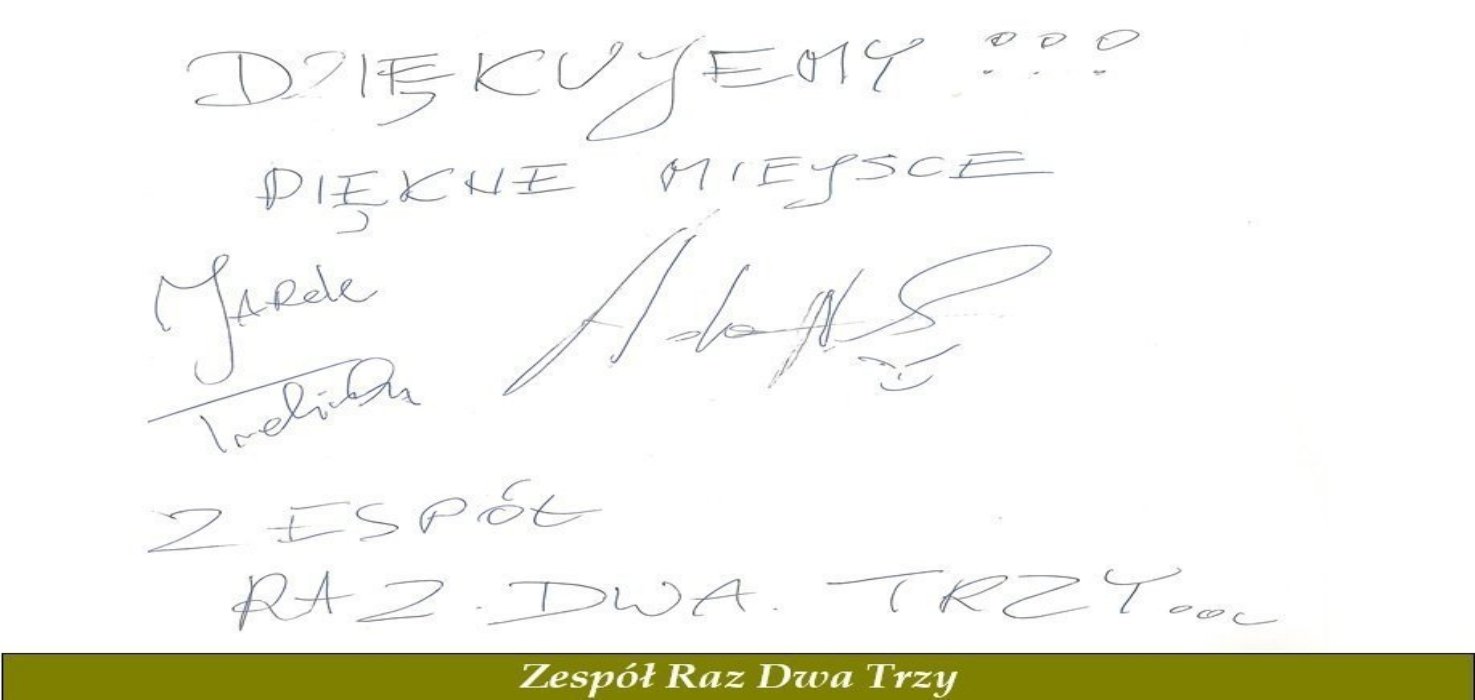 DZIĘKUJEMY !!!
PIĘKNE MIEJSCE
JAREK
ZESPÓŁ
RAZ. DWA. TRZY...
Zespół Raz Dwa Trzy